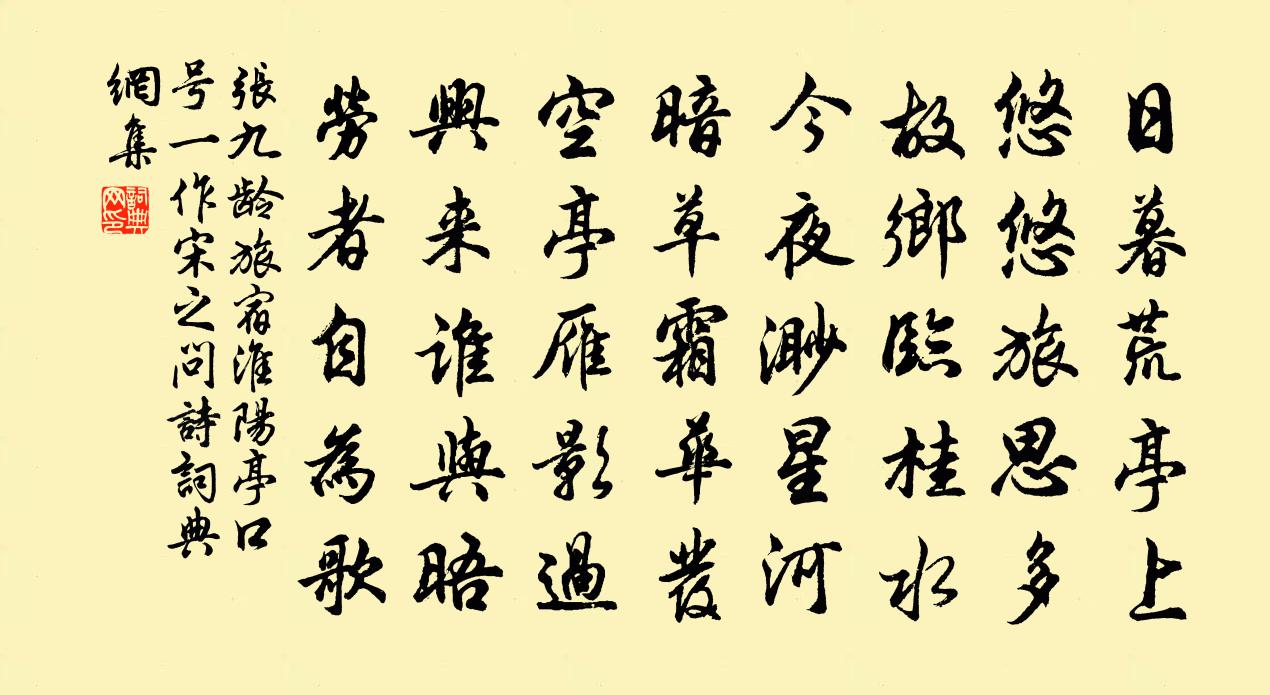 日暮荒亭上
悠悠旅思多
故鄉臨桂水
今夜渺星河
暗草霜華發
空亭雁影過
興来誰與晤
勞者自為歌
張九龄旅宿淮陽亭口
号一作宋之问詩詞典
網集
詞典
网印